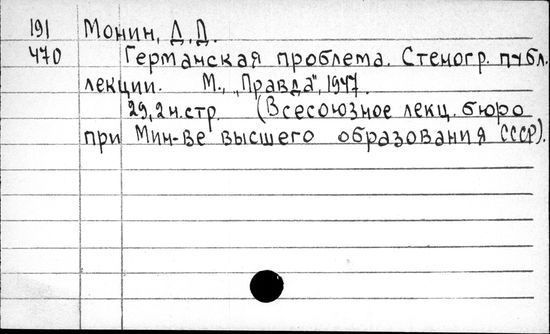 191 Монин, Д.Д.
470 Германская проблема. Стеногр. публ.
лекции. М., „Правда", 1947.
29, 2 н. стр. (Всесоюзное лекц. бюро
при Мин-ве высшего образования СССР).